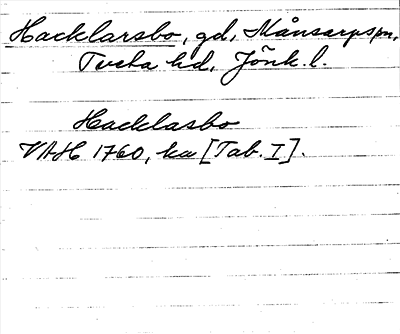 Hacklarsbo, gd, Månsarps sn,
Tveta hd, Jönk. l.
Hacklasbo
VAH 1760, ka [Tab. I].